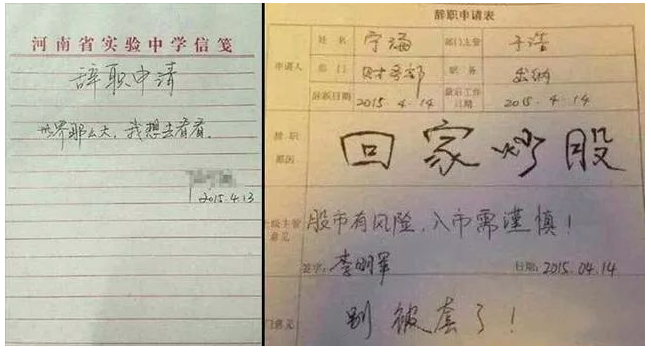 河南省实验中学信笺
辞职申请
世界那么大，我想去看看。
2015.4.13
辞职申请表
申请人
姓名 宁海 部门主管 于浩
部门 财务部 职务 出纳
辞职日期 2015.4.14 最后工作日期 2015.4.14
辞职原因
回家炒股
级主管意见
股市有风险，入市需谨慎！
签字：李明军 日期：2015.04.14
门意见
别被套了！